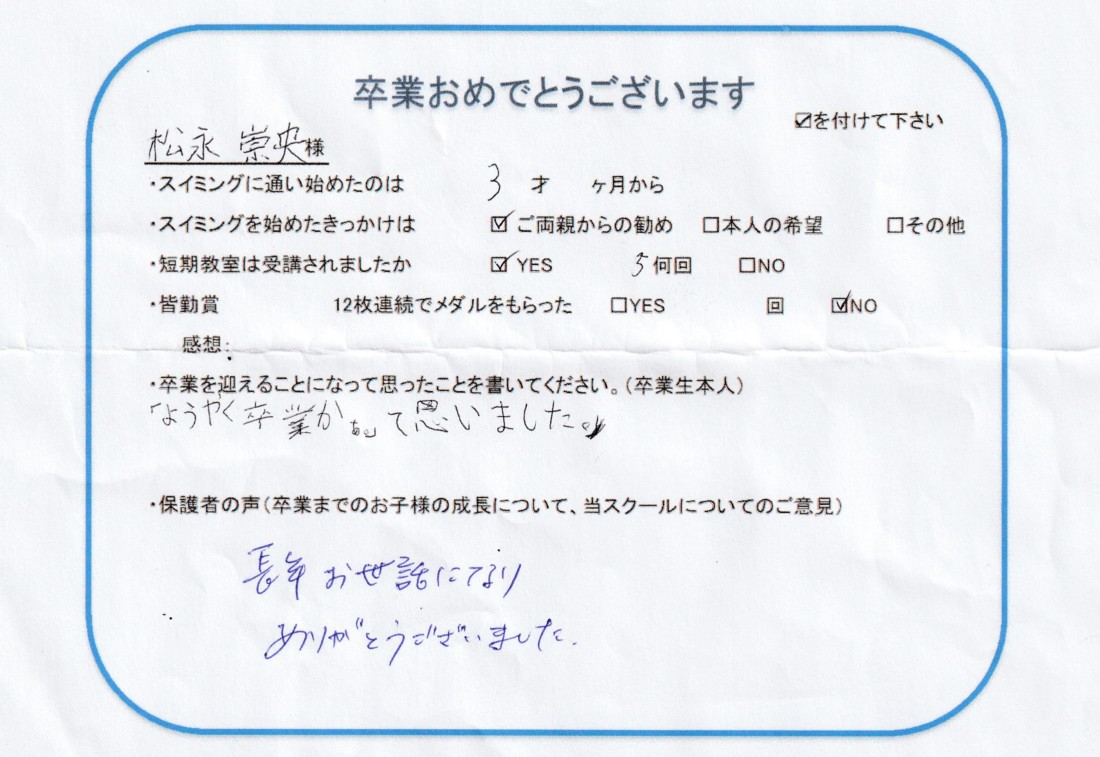 卒業おめでとうございます
☑を付けて下さい
松永 崇央様
・スイミングに通い始めたのは 3 才 ヶ月から
・スイミングを始めたきっかけは ☑ご両親からの勧め □本人の希望 □その他
・短期教室は受講されましたか ☑YES 5何回 □NO
・皆勤賞 12枚連続でメダルをもらった □YES 回 ☑NO
感想:
・卒業を迎えることになって思ったことを書いてください。(卒業生本人)
「ようやく卒業かぁ。」て思いました。
・保護者の声(卒業までのお子様の成長について、当スクールについてのご意見)
長年お世話になり
ありがとうございました.